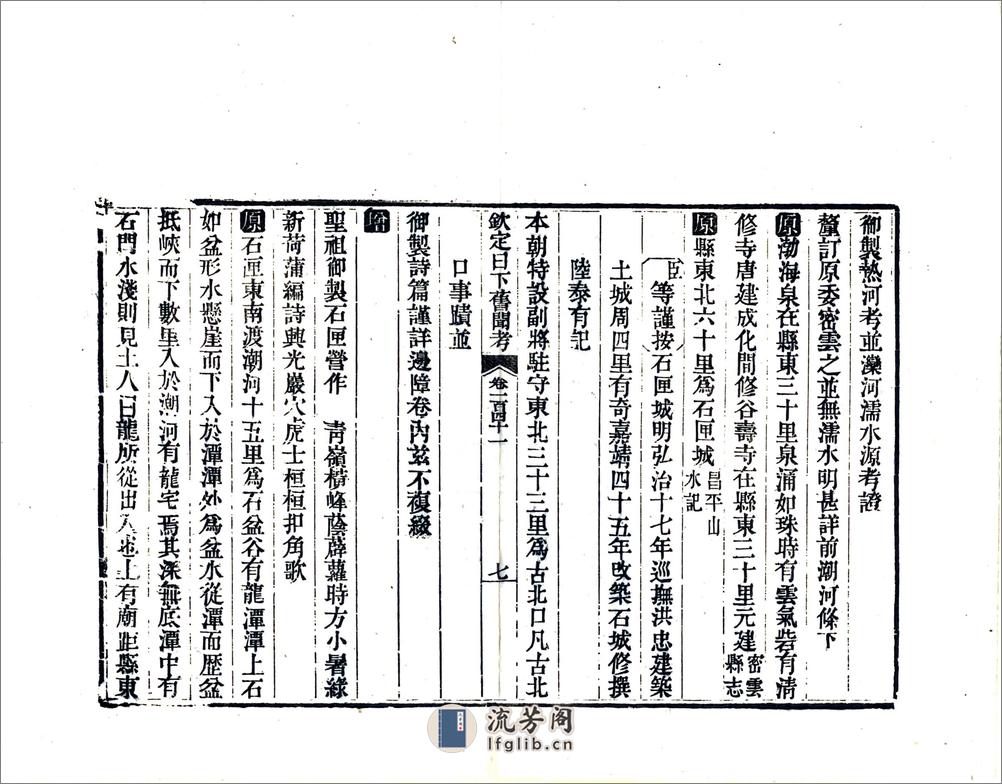 御製熱河考並灤河濡水源考證
釐訂原委密雲之並無濡水明甚詳前潮河條下
原渤海泉在縣東三十里泉涌如珠時有雲氣砦有清
修寺唐建成化間修谷壽寺在縣東三十里元建密雲縣志
原縣東北六十里爲石匣城昌平山水記
臣等謹按石匣城明弘治十七年巡撫洪忠建築
土城周四里有奇嘉靖四十五年改築石城修撰
陸泰有記
本朝特設副將駐守東北三十三里爲古北口凡古北
欽定日下舊聞考 卷一百四十一 七
口事蹟並
御製詩篇謹詳邊障卷內茲不複綴
增
聖祖御製石匣營作 靑嶺積峰蔭薜蘿時方小暑綠
新荷蒲編詩興光巖穴虎士桓桓扣角歌
原石匣東南渡潮河十五里爲石盆谷有龍潭潭上石
如盆形水懸崖而下入於潭潭外爲盆水從潭而歴盆
抵峽而下數里入於潮河有龍宅焉其深無底潭中有
石門水淺則見土人曰龍所從出入也上有廟距縣東
流芳阁
lfglib.cn